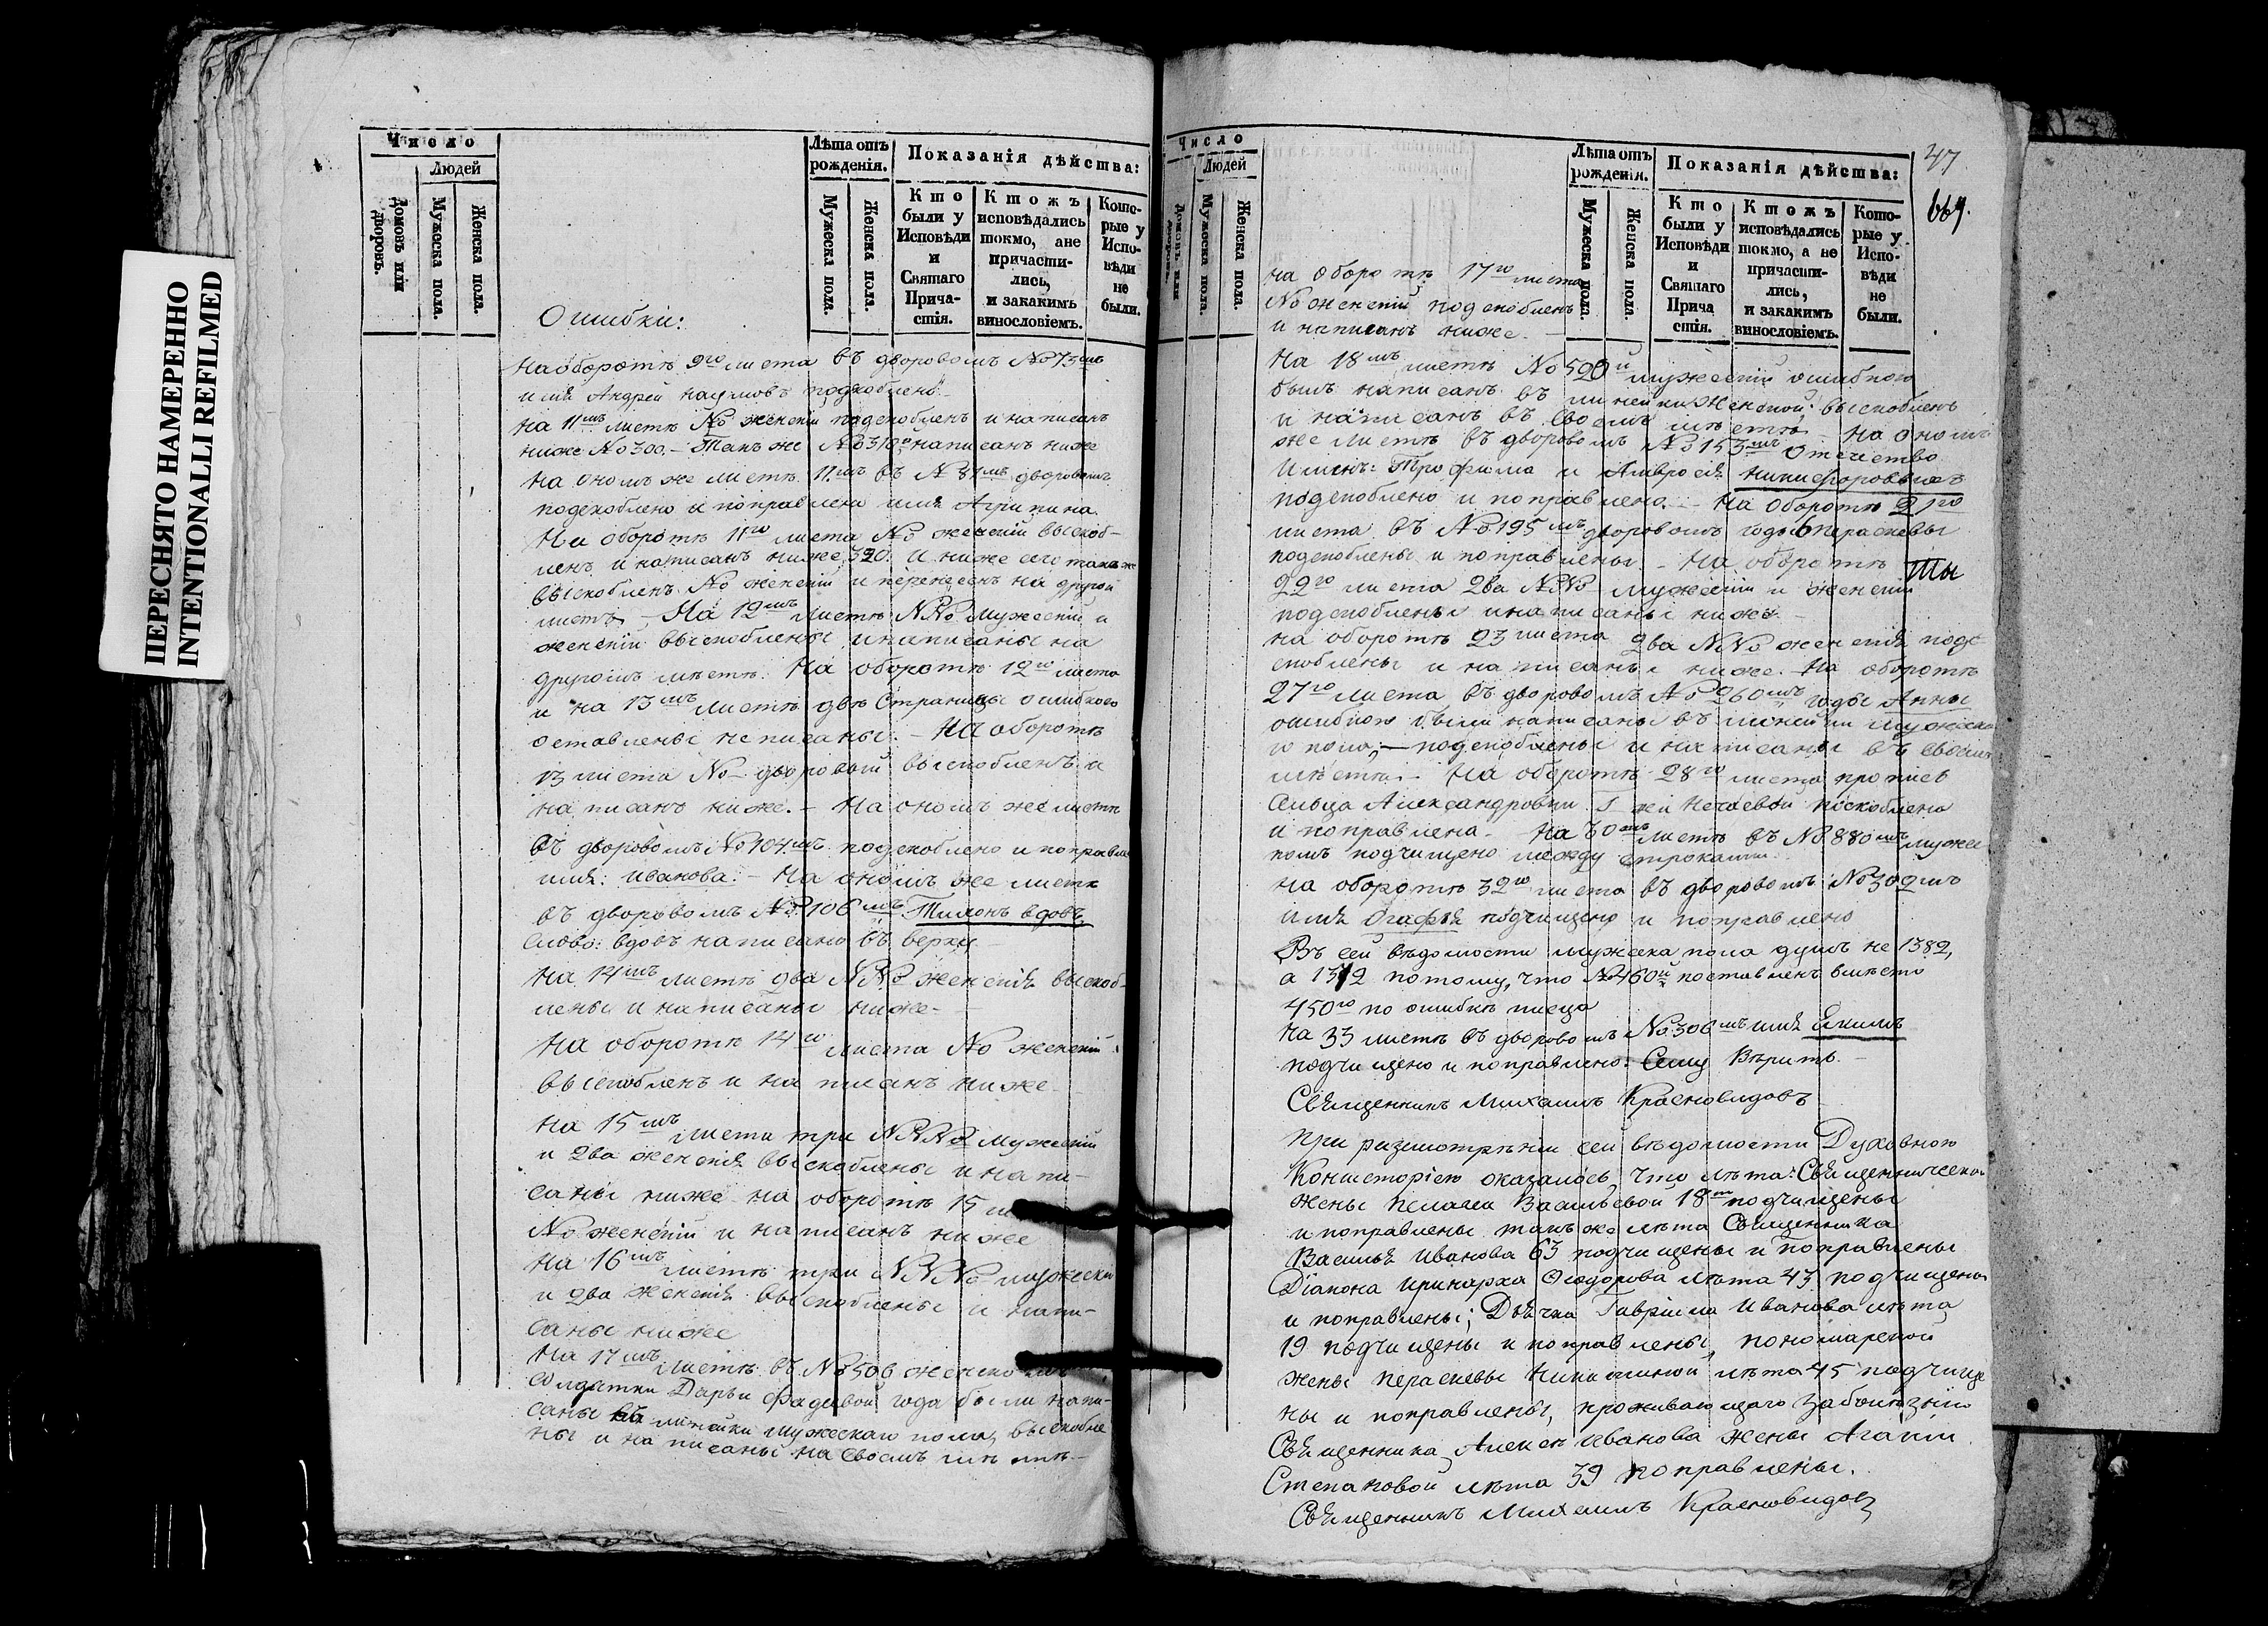 ПЕРЕСНЯТО НАМЕРЕННО
INTENTIONALLI REFILMED
Число
Людей
Домовъ или дворовъ.
Мужеска пола.
Женска пола.
Лѣта отъ рожденія.
Мужеска пола.
Женска пола.
Показанія дѣйства:
Кто были у Исповѣди и Святаго Прича-стія.
Ктожъ исповѣдались токмо, а не причасти-лись, и закакимъ винословіемъ.
Кото-рые у Испо-вѣди не были.
Ошибки:
На оборотѣ 9го листа въ дворовомъ №73мъ
имя Андрей Наумовъ подскоблено.
На 11мъ листѣ № женскій подскобленъ и написанъ
ниже №300. – Такъ же №310й написанъ ниже
На ономъ же листѣ 11мъ въ №81мъ дворовомъ
подскоблено и поправлено имя Агрипина.
На оборотѣ 11го листа № женскій выскоб-
ленъ и написанъ ниже, 320. И ниже сего такъ же
выскобленъ № женскій и перенесенъ на другой
листъ – На 12мъ листѣ №№ мужескій и
женскій выскоблены и написаны на
другомъ мѣстѣ. На оборотѣ 12го листа
и на 13мъ листѣ двѣ страницы ошибкою
оставлены неписаны. – На оборотѣ
13 листа № дворовый выскобленъ и
написанъ ниже. – На ономъ же листѣ
въ дворовомъ №104мъ подскоблено и поправле
имя: Иванова. – На ономъ же листѣ
въ дворовомъ №106мъ Тихонъ вдовъ,
слово: вдовъ написано въ верху
На 14мъ листѣ два №№ женскія выскоб-
лены и написаны ниже –
На оборотѣ 14го листа № женскій
выскобленъ и написанъ ниже
На 15мъ листѣ три №№№ мужескій
и два женскія выскоблены и напи-
саны ниже на оборотѣ 15
№ женскій и написанъ ниже
На 16мъ листѣ три №№№ мужескій
и два женскія выскоблены и напи-
саны ниже
На 17мъ листѣ въ №506 женскомъ
солдатки Дарьи Фадѣевой года были напи-
саны въ линейки мужескаго пола, выскобле
ны и написаны на своемъ мѣстѣ –
Число
Людей
Домовъ или дворовъ.
Мужеска пола.
Женска пола.
Лѣта отъ рожденія.
Мужеска пола.
Женска пола.
Показанія дѣйства:
Кто были у Исповѣди и Святаго Прича стія.
Ктожъ исповѣдались токмо, а не причасти-лись, и закакимъ винословіемъ.
Кото-рые у Испо-вѣди не были.
47
667.
На оборотѣ 17го листа
№ женскій подскобленъ
и написанъ ниже –
На 18мъ листѣ №520й мужескій ошибкою
былъ написанъ въ линейки женской: выскобленъ
и написанъ въ своемъ мѣстѣ – На ономъ
же листѣ въ дворовомъ №153мъ отечество
именъ: Трофима и Амвросія Никифоровыхъ
подскоблено и поправлено. – На оборотѣ 21го
листа въ №195мъ дворовомъ годы 6 Перасковьи
подскоблены и поправлены. – На оборотѣ
22го листа два №№ мужескій и женскій
подскоблены и написаны ниже –
На оборотѣ 23 листа два №№ женскія под
скоблены и написаны ниже. На оборотѣ
27го листа въ дворовомъ №260мъ годы Анны
ошибкою были написаны въ линейки мужеска
го пола, – подскоблены и написаны въ своемъ
мѣстѣ. – На оборотѣ 28го листа пропись
сельца Александровки Гжи Нечаевой поскоблена
и поправлена. – На 30мъ листѣ въ №880мъ мужес
комъ подчищено между строками.
На оборотѣ 32го листа въ дворовомъ №302мъ
имя Агафія подчищено и поправлено
Въ сей вѣдомости мужеска пола душъ не 1382,
а 1372 потому, что №460й поставленъ вмѣсто
450го по ошибкѣ писца
На 33 листѣ въ дворовомъ №306мъ имя Екимъ
подчищено и поправлено: Сему Вѣрить. –
Священникъ Михаилъ Красновидовъ
При разсмотрѣніи сей вѣдомости Духовною
Консисторіею оказалось, что лѣта: Священническо
жены Пелагеи Васильевой 18 подчищены
и поправлены такъ же лѣта Священника
Василья Иванова 63 подчищены и поправлены
Діакона Иринарха Ѳеодорова лѣта 43 подчищены
и поправлены; Дьячка Гавріила Иванова лѣта
19 подчищены и поправлены, пономарской
жены Перасковьи Никитиной лѣта 45 подчище
ны и поправлены, проживающаго заболѣзнію
Священника Алексѣя Иванова жены Агафіи
Степановой лѣта 39 поправлены.
Священникъ Михаилъ Красновидовъ